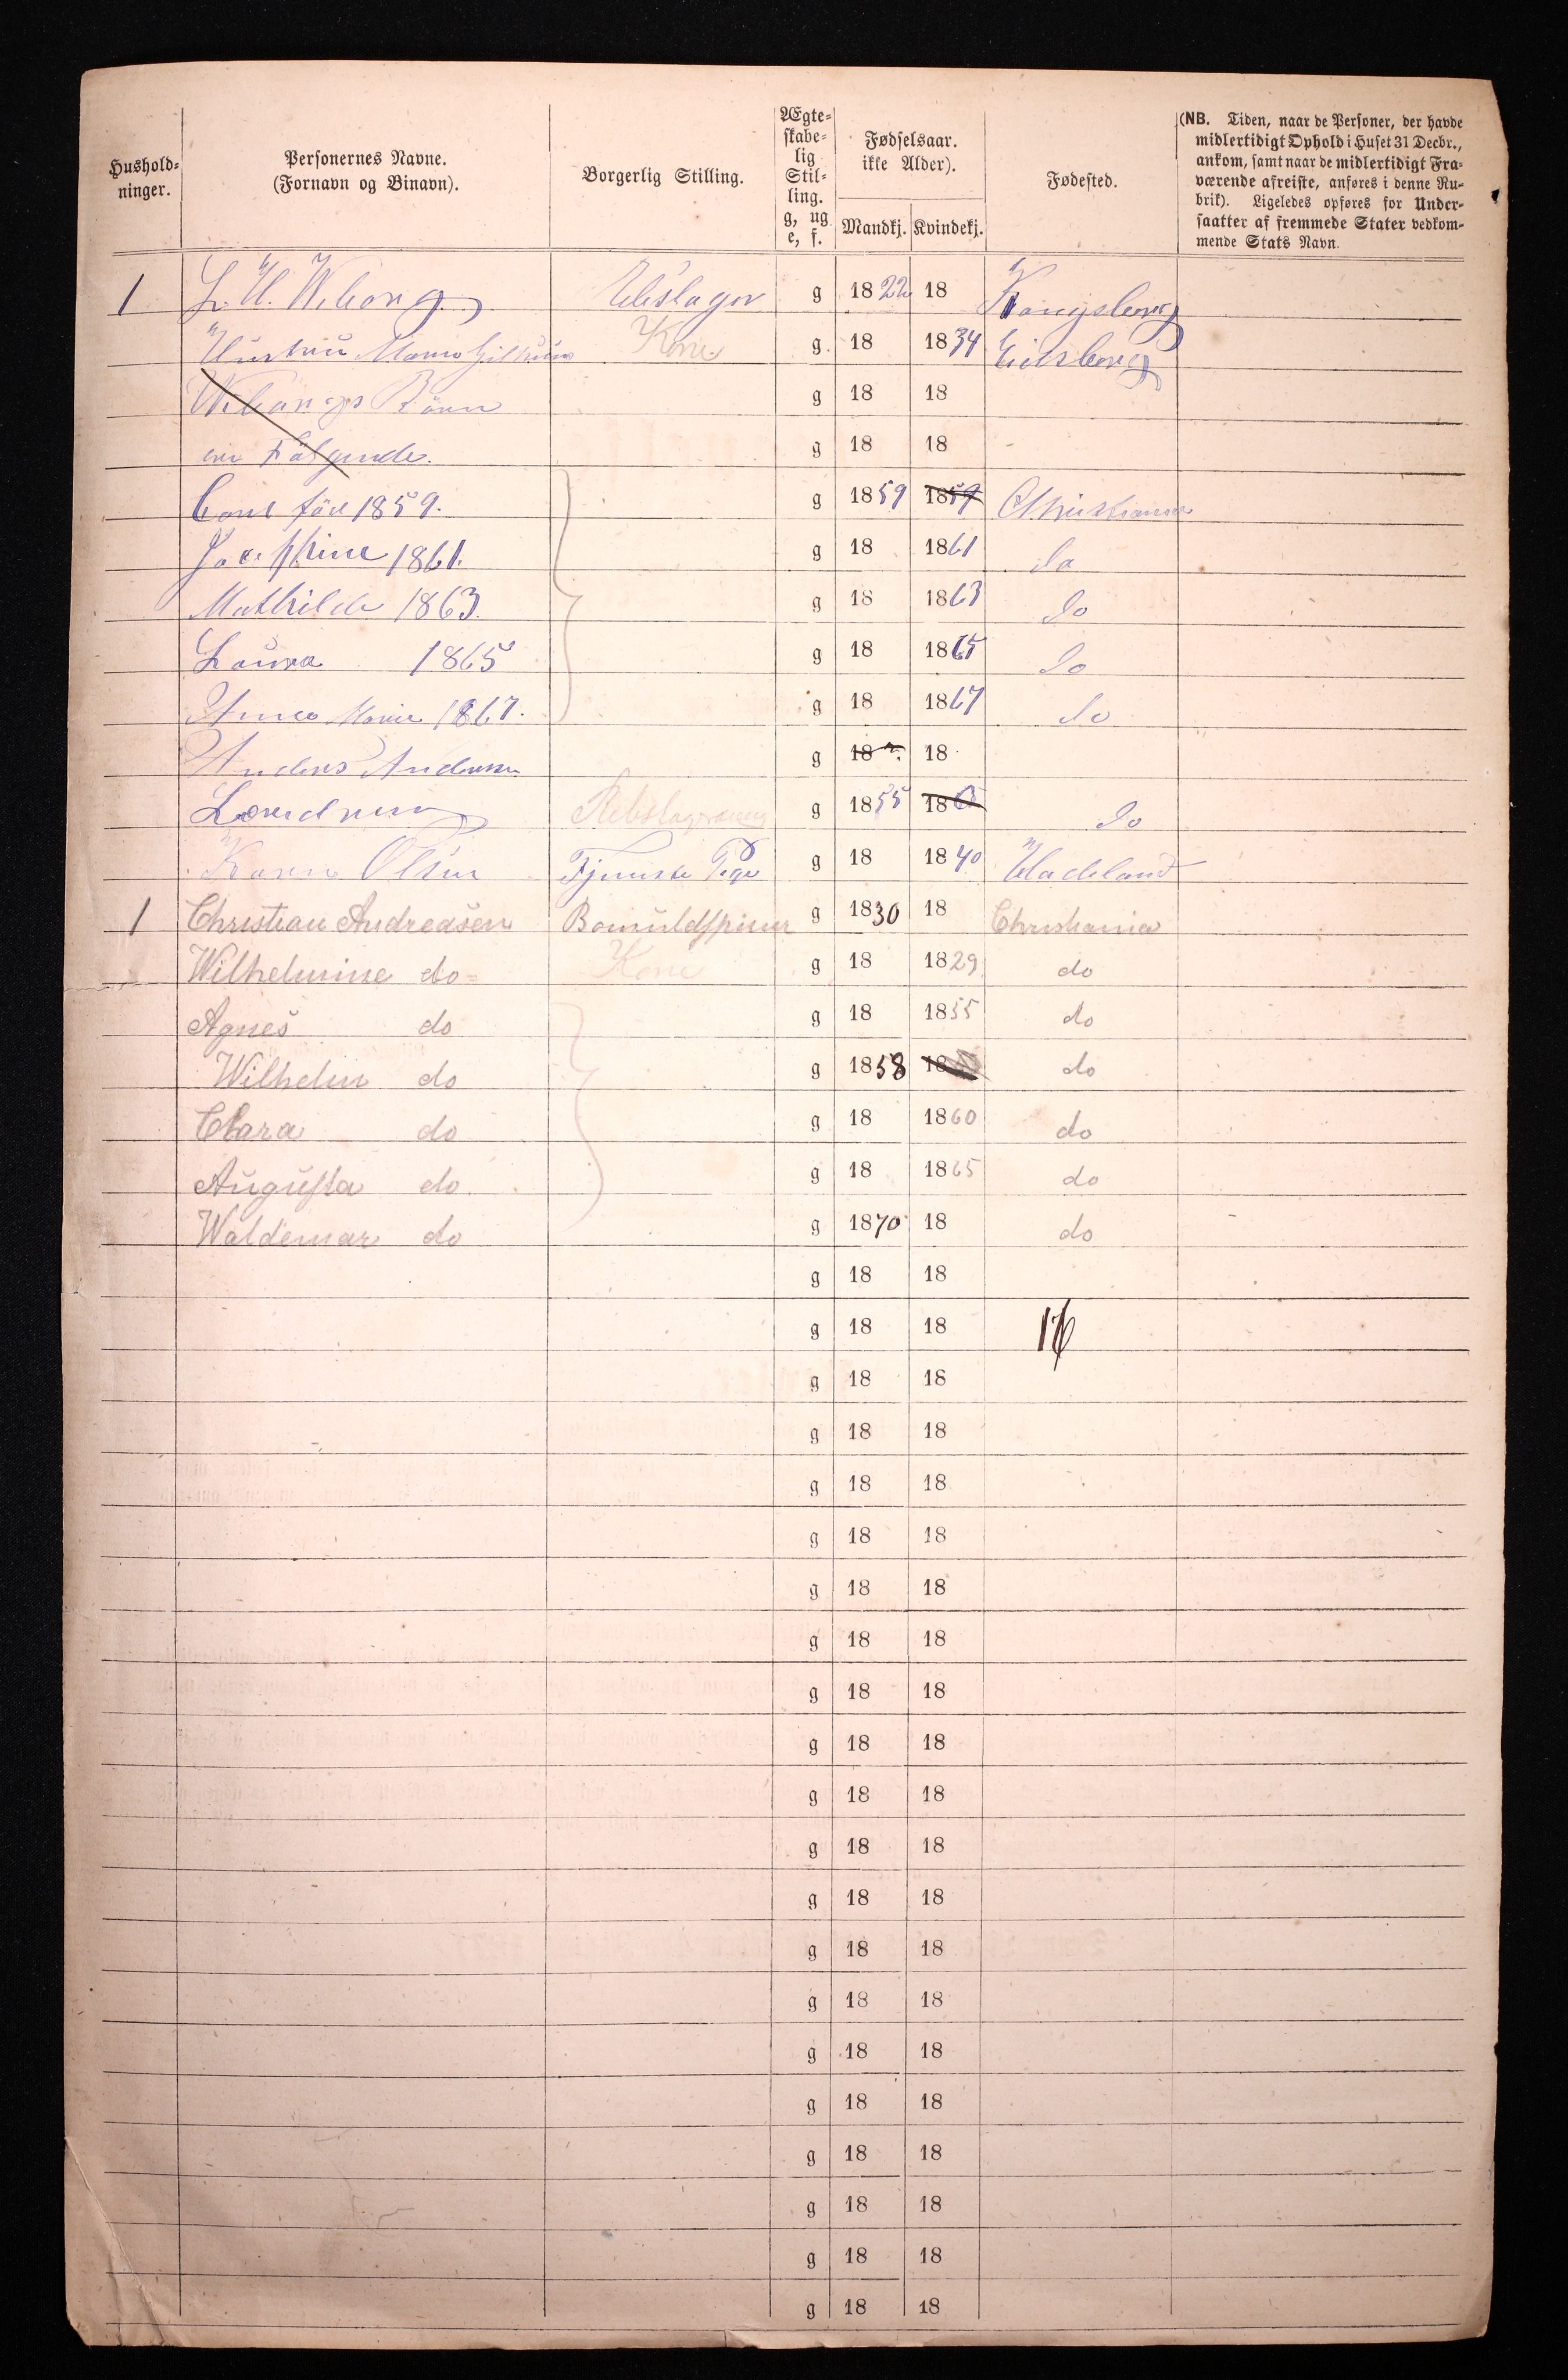 Hushold-
ninger.
Personernes Navne.
(Fornavn og Binavn).
Borgerlig Stilling.
Ægte-
skabe-
lig
Stil-
ling.
g, ug
e, f.
Fødselsaar.
ikke Alder).
Mandkj. Kvindekj.
Fødested.
(NB. Tiden, naar de Personer, der havde
midlertidigt Ophold i Huset 31 Decbr.,
ankom, samt naar de midlertidigt Fra-
værende afreiste, anføres i denne Ru-
brik). Ligeledes opføres for Under-
saatter af fremmede Stater vedkom-
mende Stats Navn.
1 L. H. Wiborg g 1822 18 Kongsberg
Hustru Kone g. 18 1834 Eidsberg
Wiborgs Börn g 18 18
er Fölgende. g 18 18
Carl föd 1859. g 1859 1859 Christiania
Josephine 1861. g 18 1861 do
Mathilde 1863. g 18 1863 do
Laura 1865 g 18 1865 do
Anna Marie 1867. g 18 1867 do
Anders Andersen g 18 18
g 1855 18 do
Karen Olsen Tjeneste Pige g 18 1840 Hadeland
1 Christian Andreasen Bomuldspinner g 1830 18 Christiania
Wilhelmine do Kone g 18 1829 do
Agnes do g 18 1855 do
Wilhelm do g 1858 18 do
Clara do g 18 1860 do
Augusta do g 18 1865 do
Waldemar do g 1870 18 do
g 18 18
g 18 18 16
g 18 18
g 18 18
g 18 18
g 18 18
g 18 18
g 18 18
g 18 18
g 18 18
g 18 18
g 18 18
g 18 18
g 18 18
g 18 18
g 18 18
g 18 18
g 18 18
g 18 18
g 18 18
g 18 18